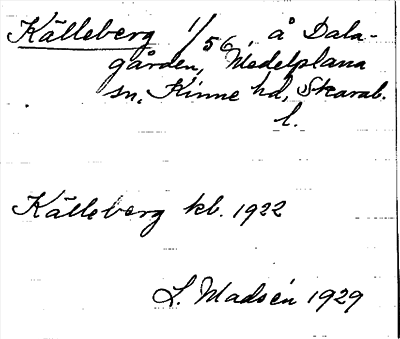 Källeberg 1/56, å Dala-
gården, Medelplana
sn, Kinne hd, Skarab.
l.
Källeberg kb. 1922
L. Madsén 1929